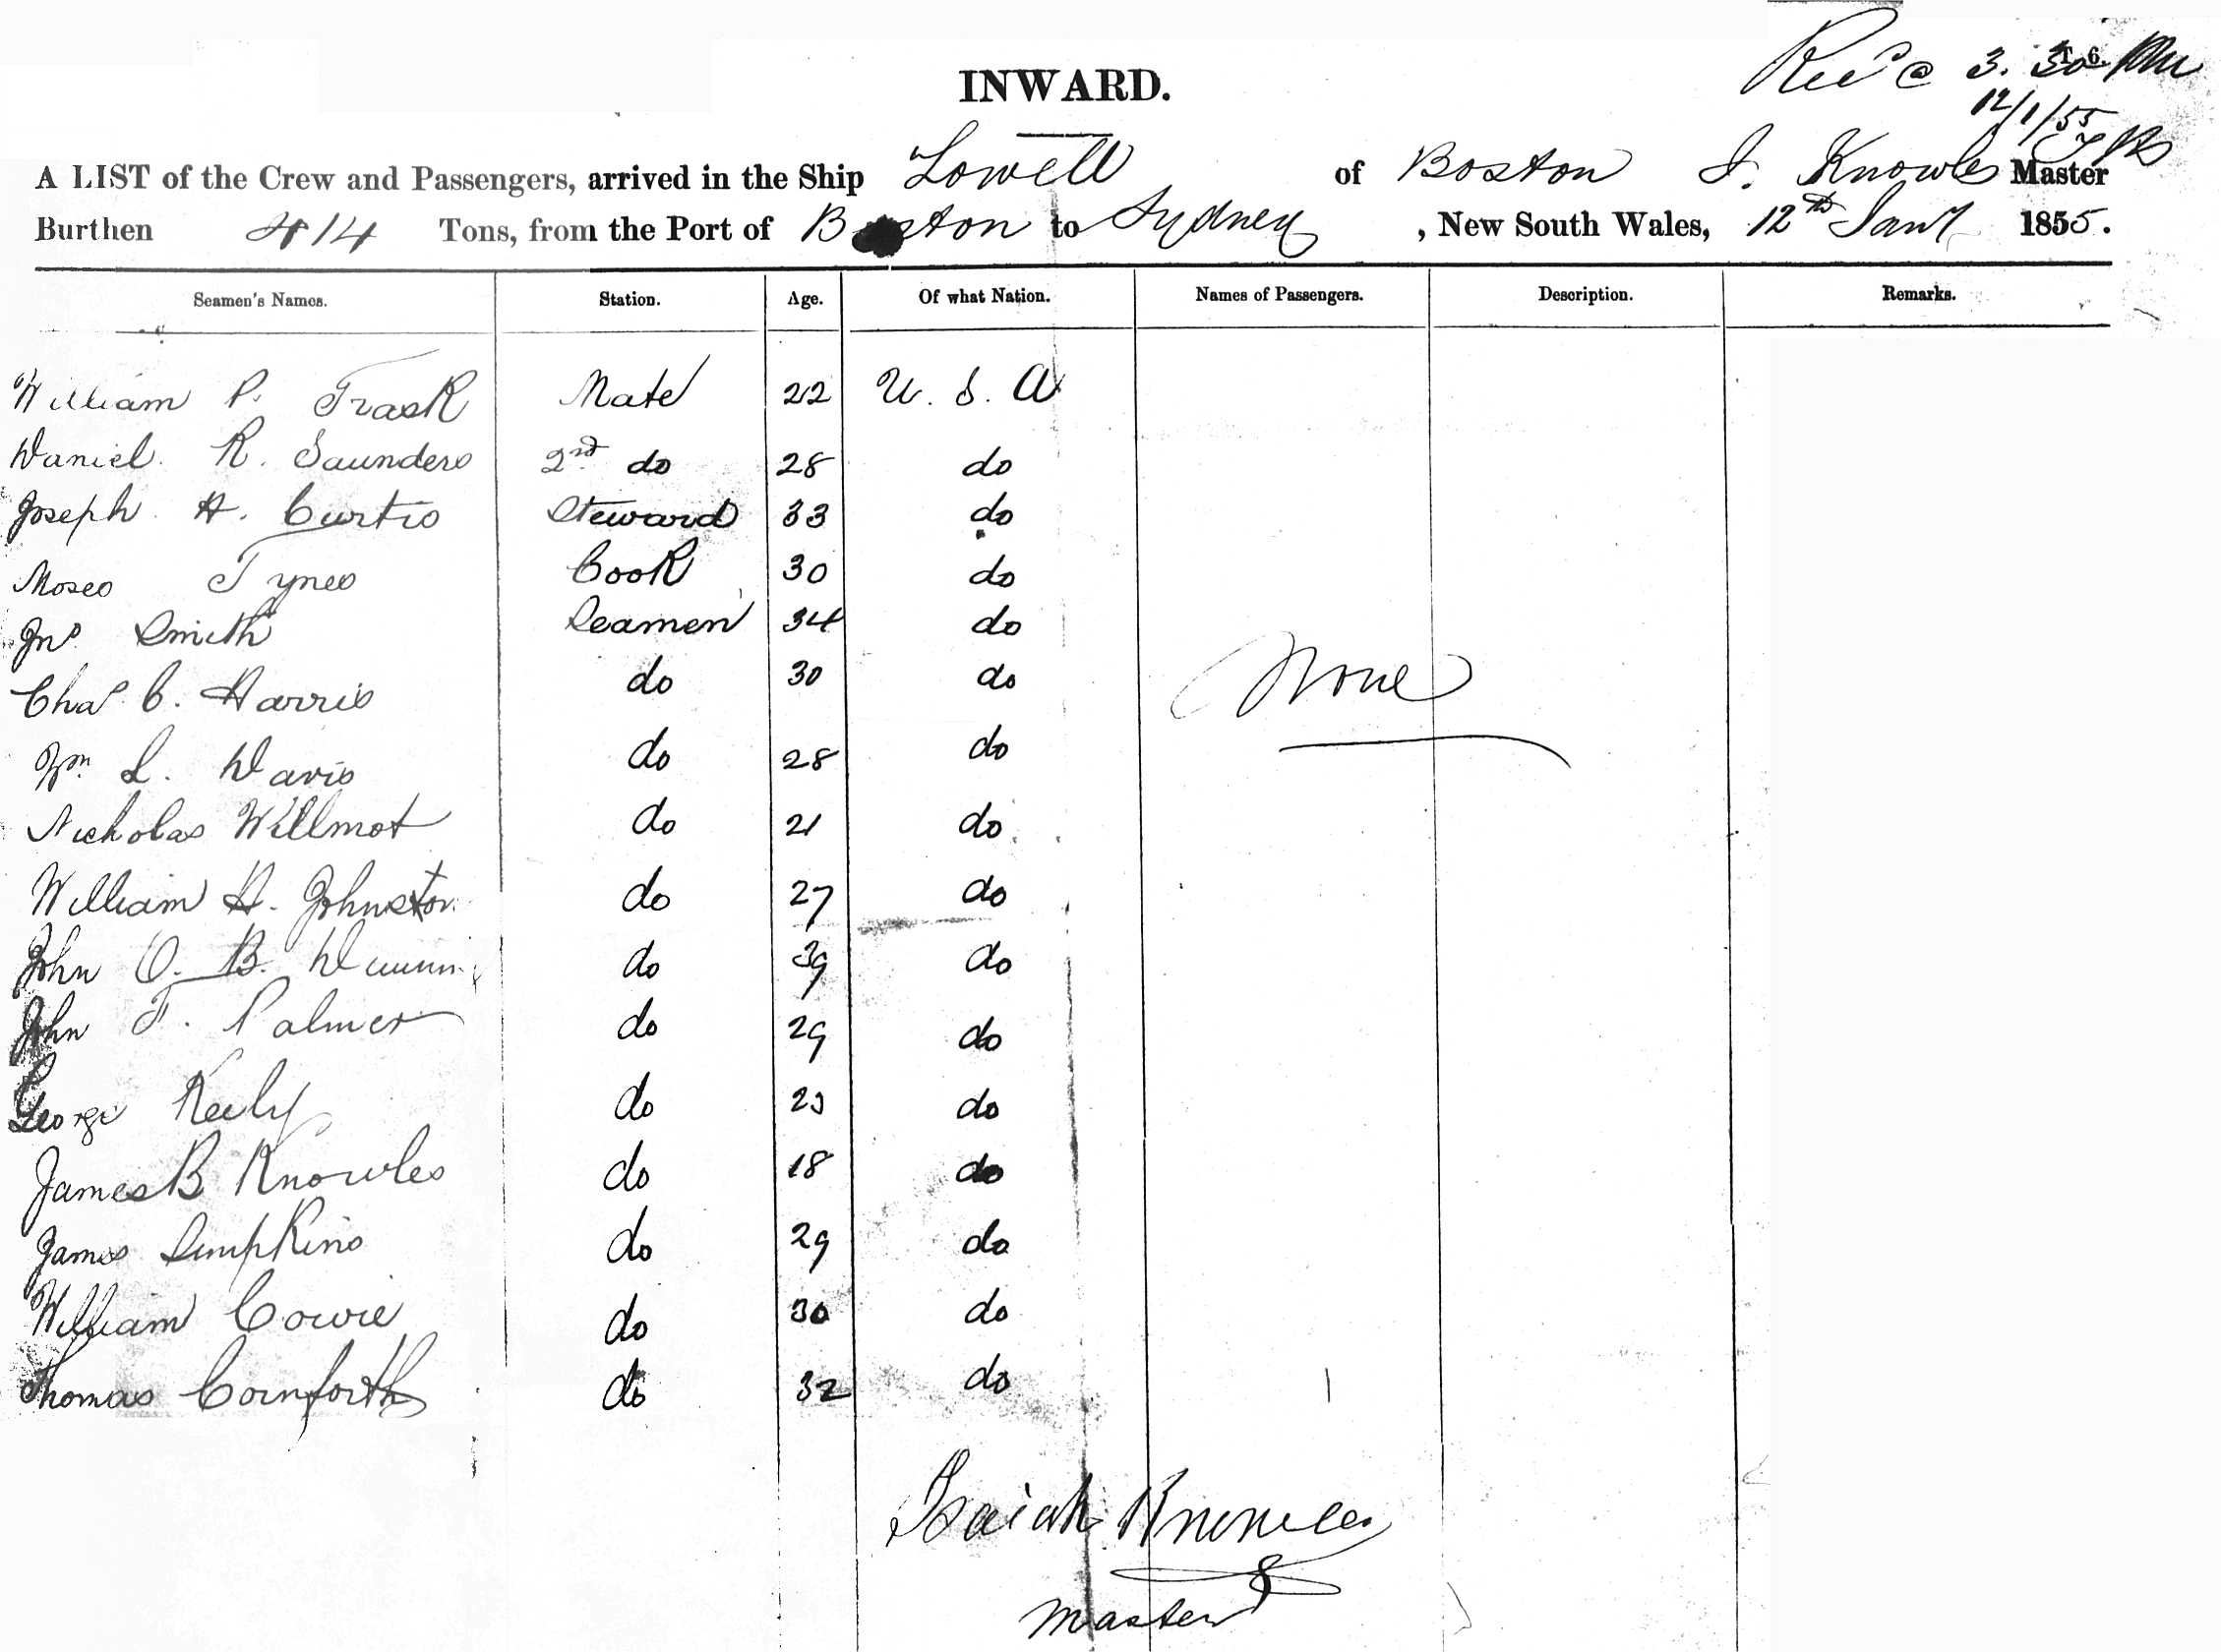 T. 6.
Recd @ 3. 30 PM
12/1/55
INWARD.
A LIST of the Crew and Passengers, arrived in the Ship Lowell of Boston I. Knowles Master
Burthen 414 Tons, from the Port of Boston to Sydney, New South Wales, 12th Jany 1855.
Seamen's Names. Station. Age. Of what Nation. Names of Passengers. Description. Remarks.
William P. Trask Mate 22 U. S. A
Daniel R. Saunders 2nd do 28 do
Joseph H. Curtis Steward 33 do
Moses Tynes Cook 30 do
Jno Smith Seamen 34 do
Chas C. Harris do 30 do
None
Wm L. Davis do 28 do
Nicholas Willmot do 21 do
William H. Johnston do 27 do
John O. B. do 39 do
John F. Palmer do 29 do
George Keely do 23 do
James B Knowles do 18 do
James Simpkins do 29 do
William Cowie do 30 do
Thomas Cornforth do 32 do
Isaiah Knowles
Master